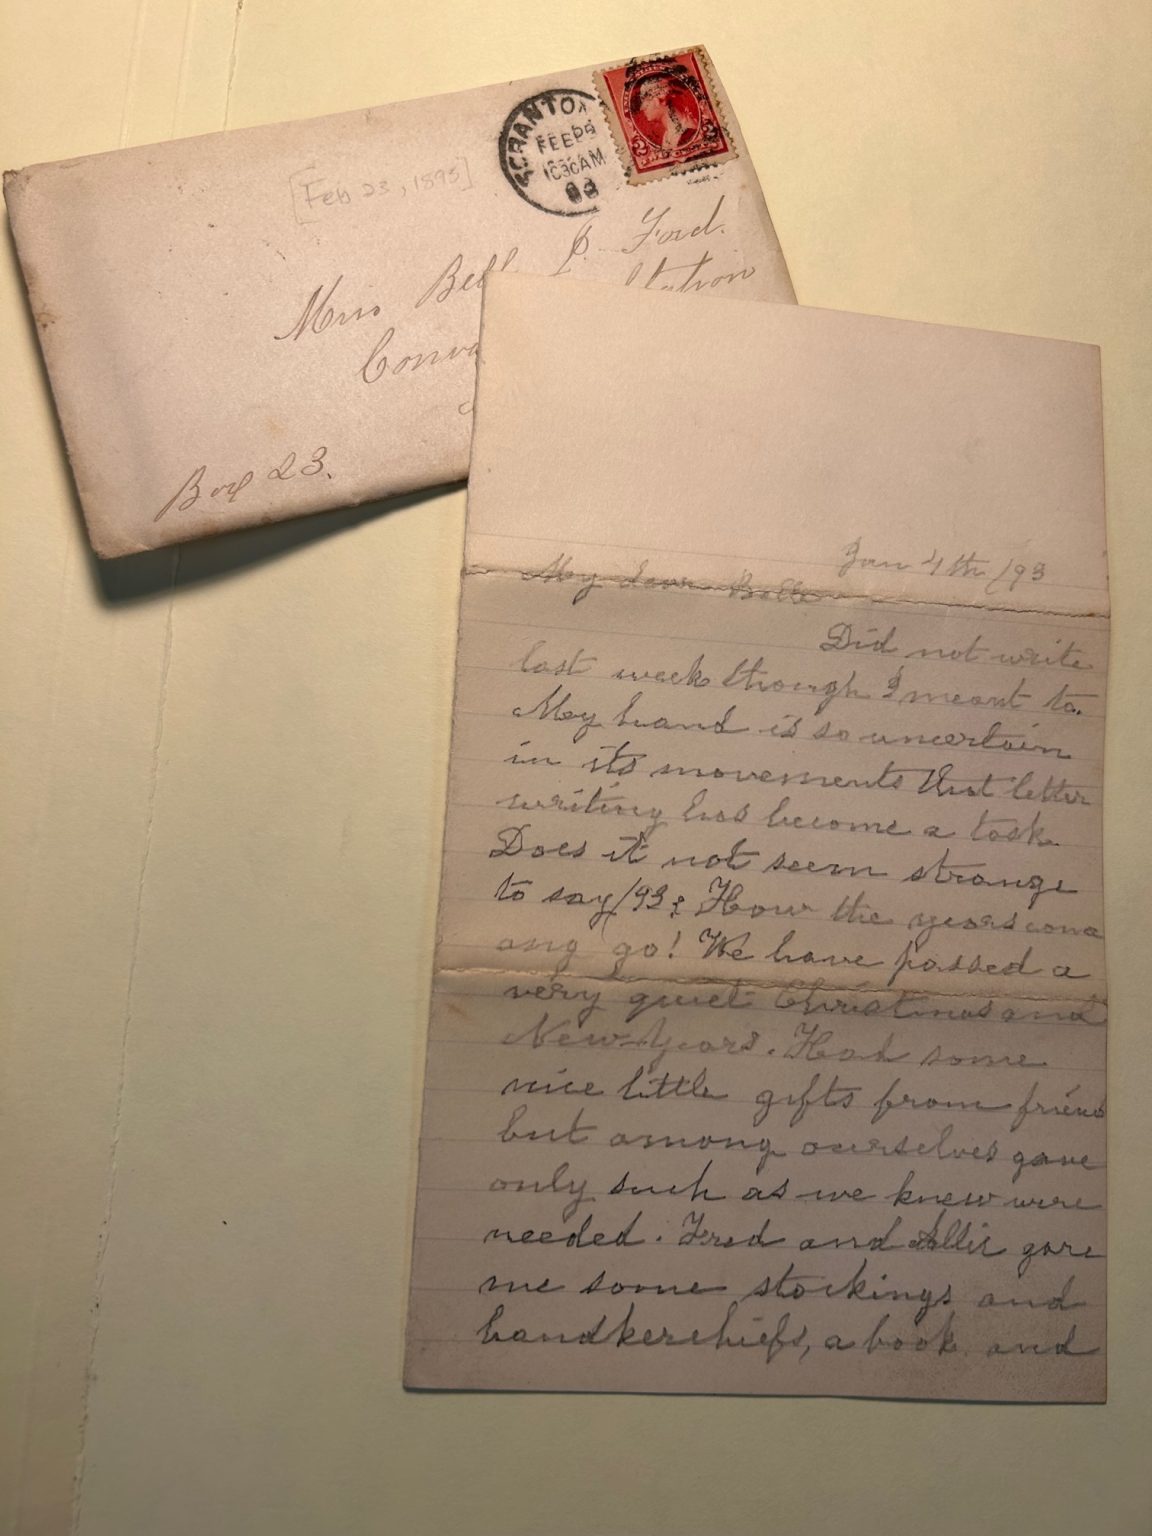 SCRANTON
FEB
1030AM
93
2 2
[Feb 23, 1893]
Miss Bell P. Ford.
Station
Box 23.
Jan 4th /93
My dear Belle
Did not write
last week though I meant to.
My hand is so uncertain
in its movements that letter
writing has become a task.
Does it not seem strange
to say /93? How the years come
ang go! We have passed a
very quiet Christmas and
New Years. Had some
nice little gifts from friend
but among ourselves gave
only such as we knew were
needed. Fred and Allie gave
me some stockings and
handkerchiefs, a book and